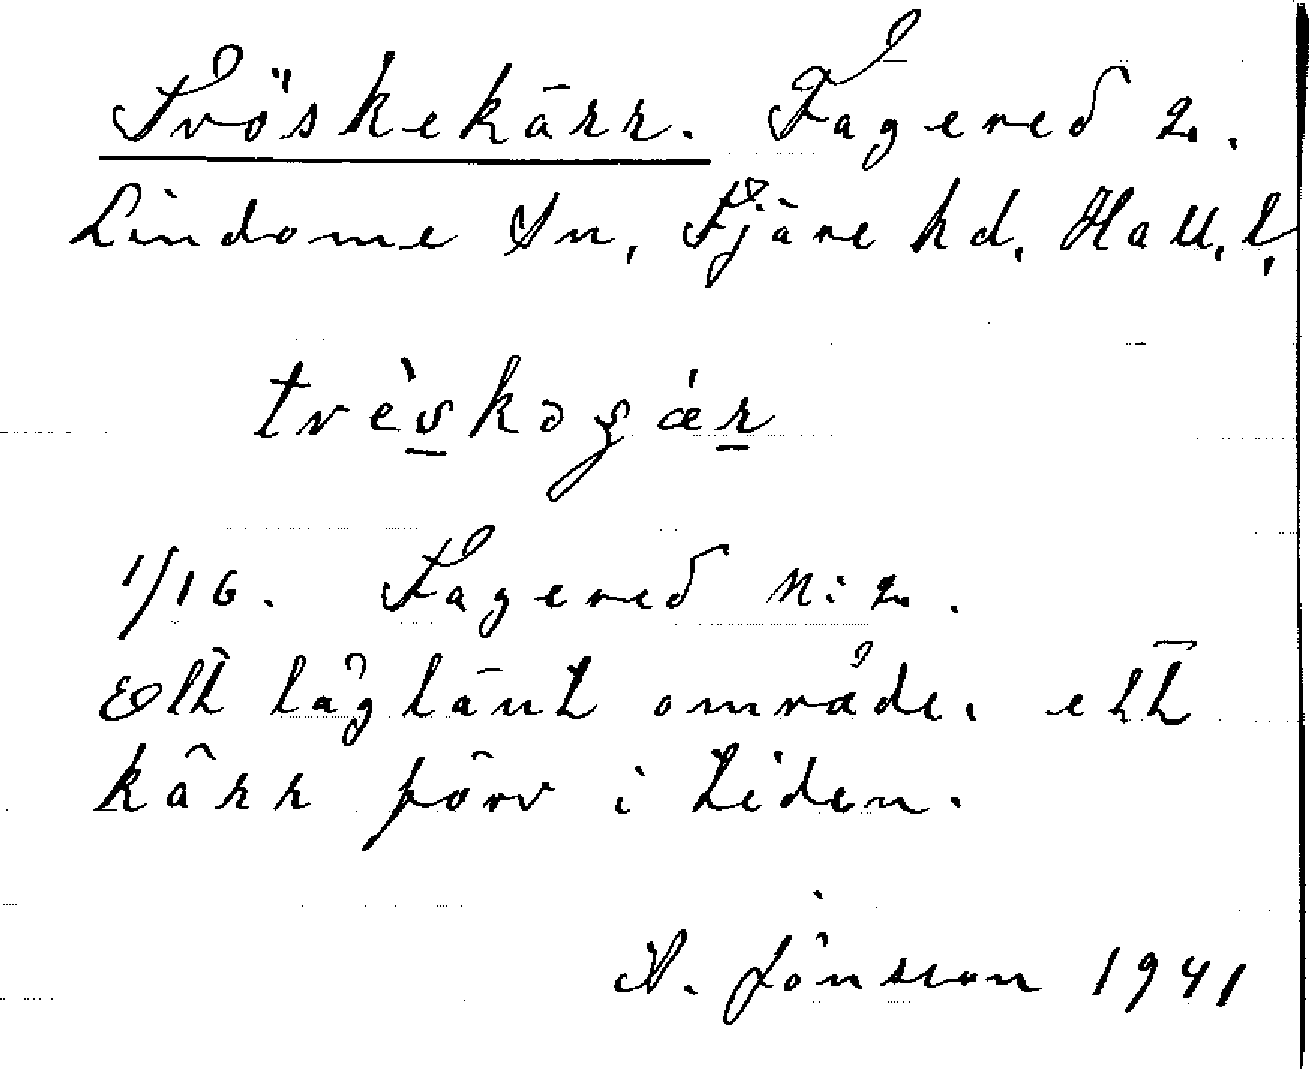 Tröskekärr. Fagered 2.
Lindome Sn, Fjäre hd. Hall. l.
trè̀skəgǽr
1/16. Fagered N:2.
Ett låglänt område. ett
kärr förr i tiden.
A. Jönsson 1941